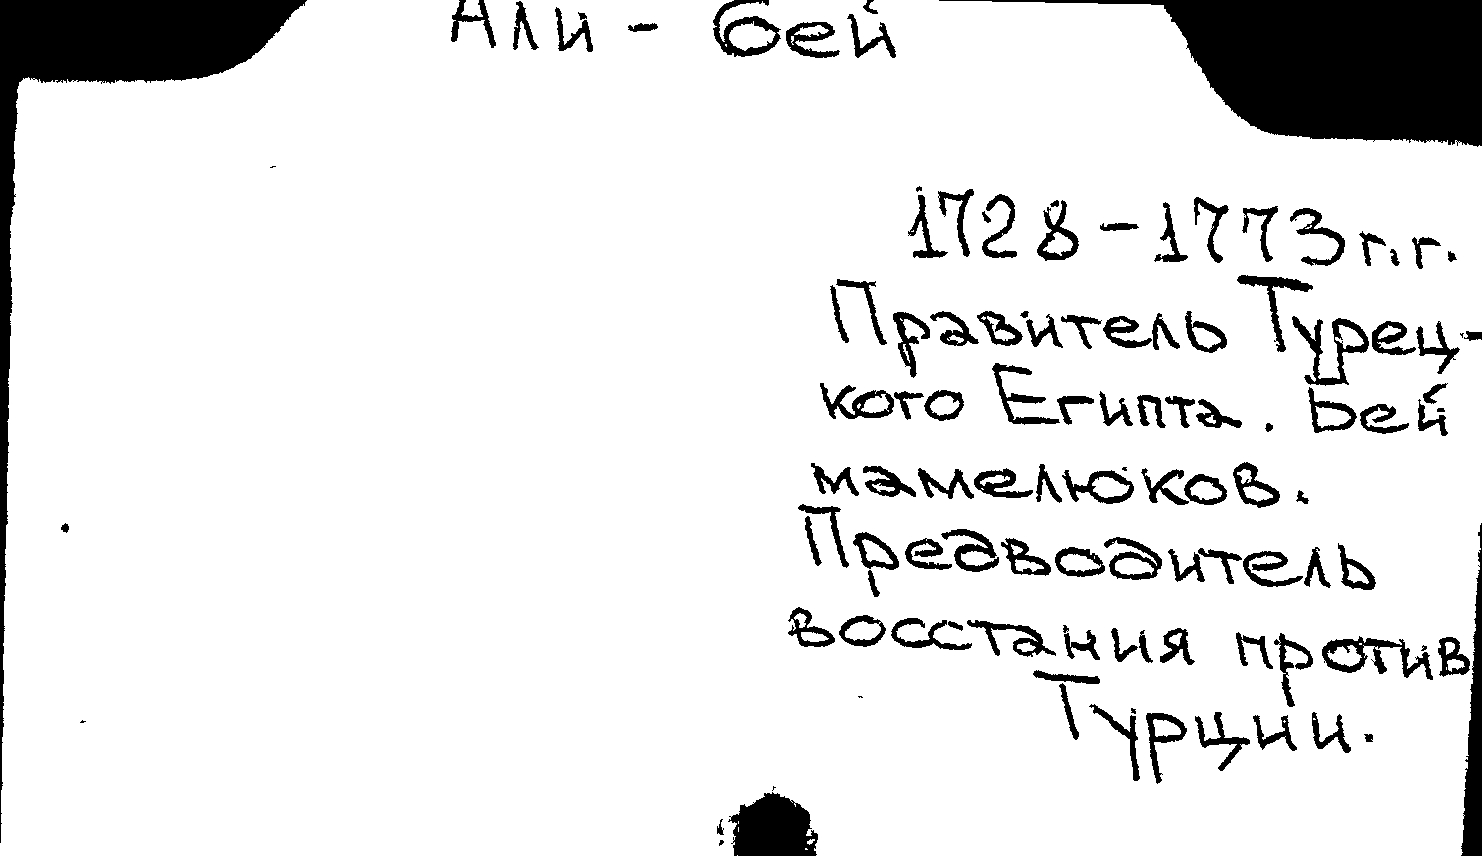 Али - бей
1728 - 1773 г.г.
Правитель Турец-
кого Египта. Бей
мамелюков.
Предводитель
восстания против
Турции.